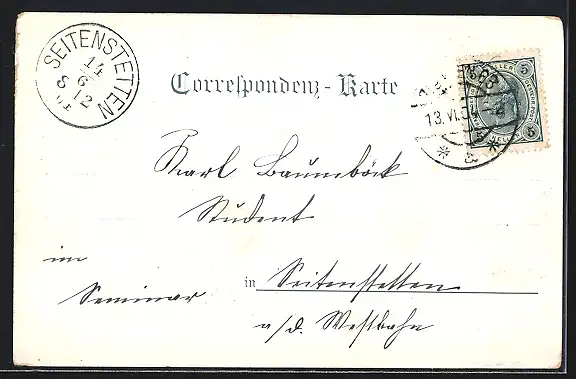 SEITENSTETTEN
14
6
8 12
Correspondenz-Karte
5 HELLER 5
13. VI.
3
Karl Baumböck
Student
im
Seminar
in Seitenstetten
a/d. Westbahn